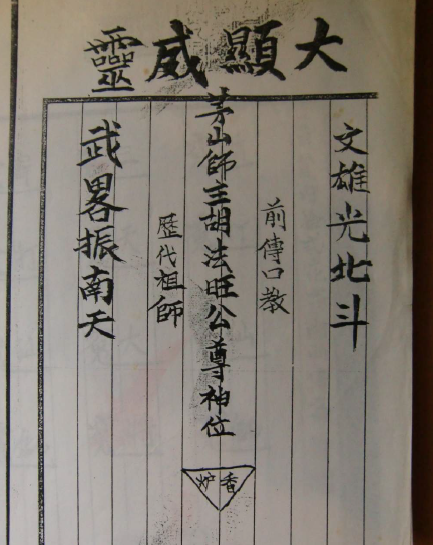 大顯威靈
文雄光北斗
前傳口教
茅山師主胡法旺公尊神位
歷代祖師
武畧振南天
香炉